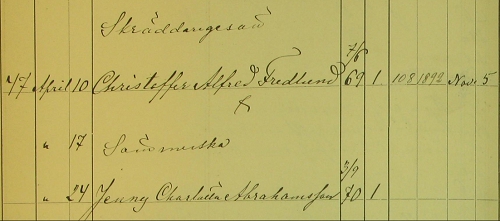 Skräddaregesäll
7/6
47 April 10 Christoffer Alfred Fredlund 69 1 108 1892 Nov. 5
" 17 Sömmerska
3/9
" 24 Jenny Charlotta Abrahamsson 70 1